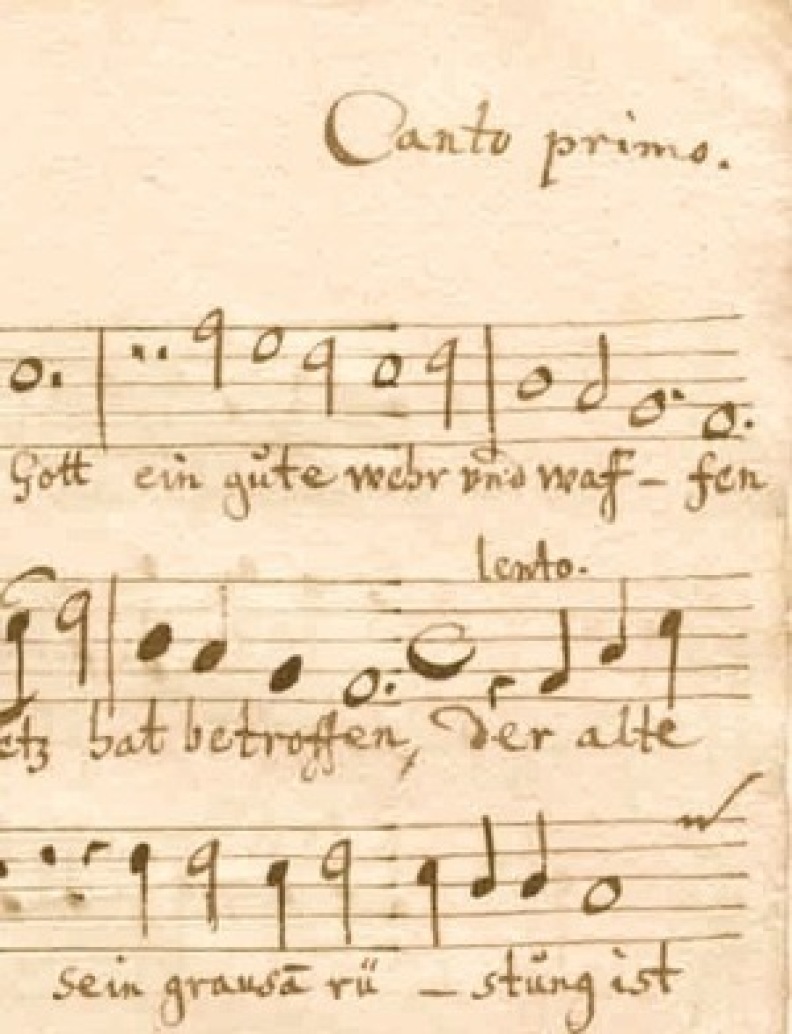 Canto primo.
Gott ein gǔte wehr vnd waf– fen
lento.
etz hat betroffen, der alte
sein grausā rü – stǔng ist